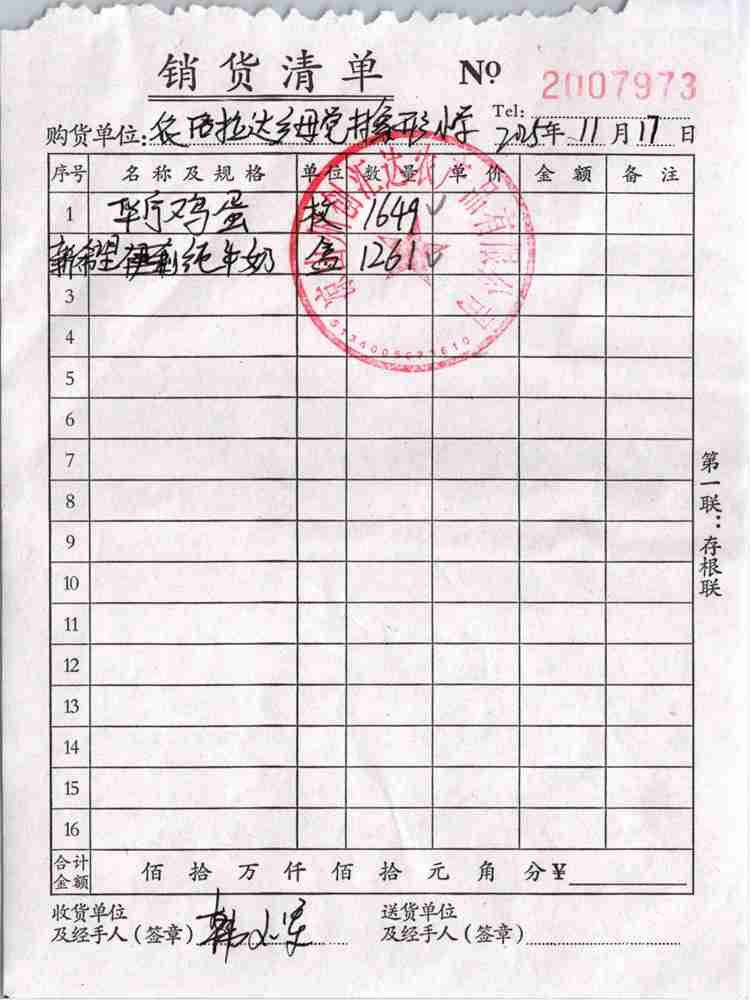 销货清单 № 2007973
Tel:
购货单位: 拉达乡母觉村完小学 2025年 11月 17日
序号 名称及规格 单位 数量 单价 金额 备注
1 华宁鸡蛋 枚 1649
新希望 纯牛奶 盒 1261
3
4
5
6
7
8
9
10
11
12
13
14
15
16
合计金额 佰 拾 万 仟 佰 拾 元 角 分 ¥
收货单位 送货单位
及经手人(签章) 韩 及经手人(签章)
第一联：存根联
农产品有限公司